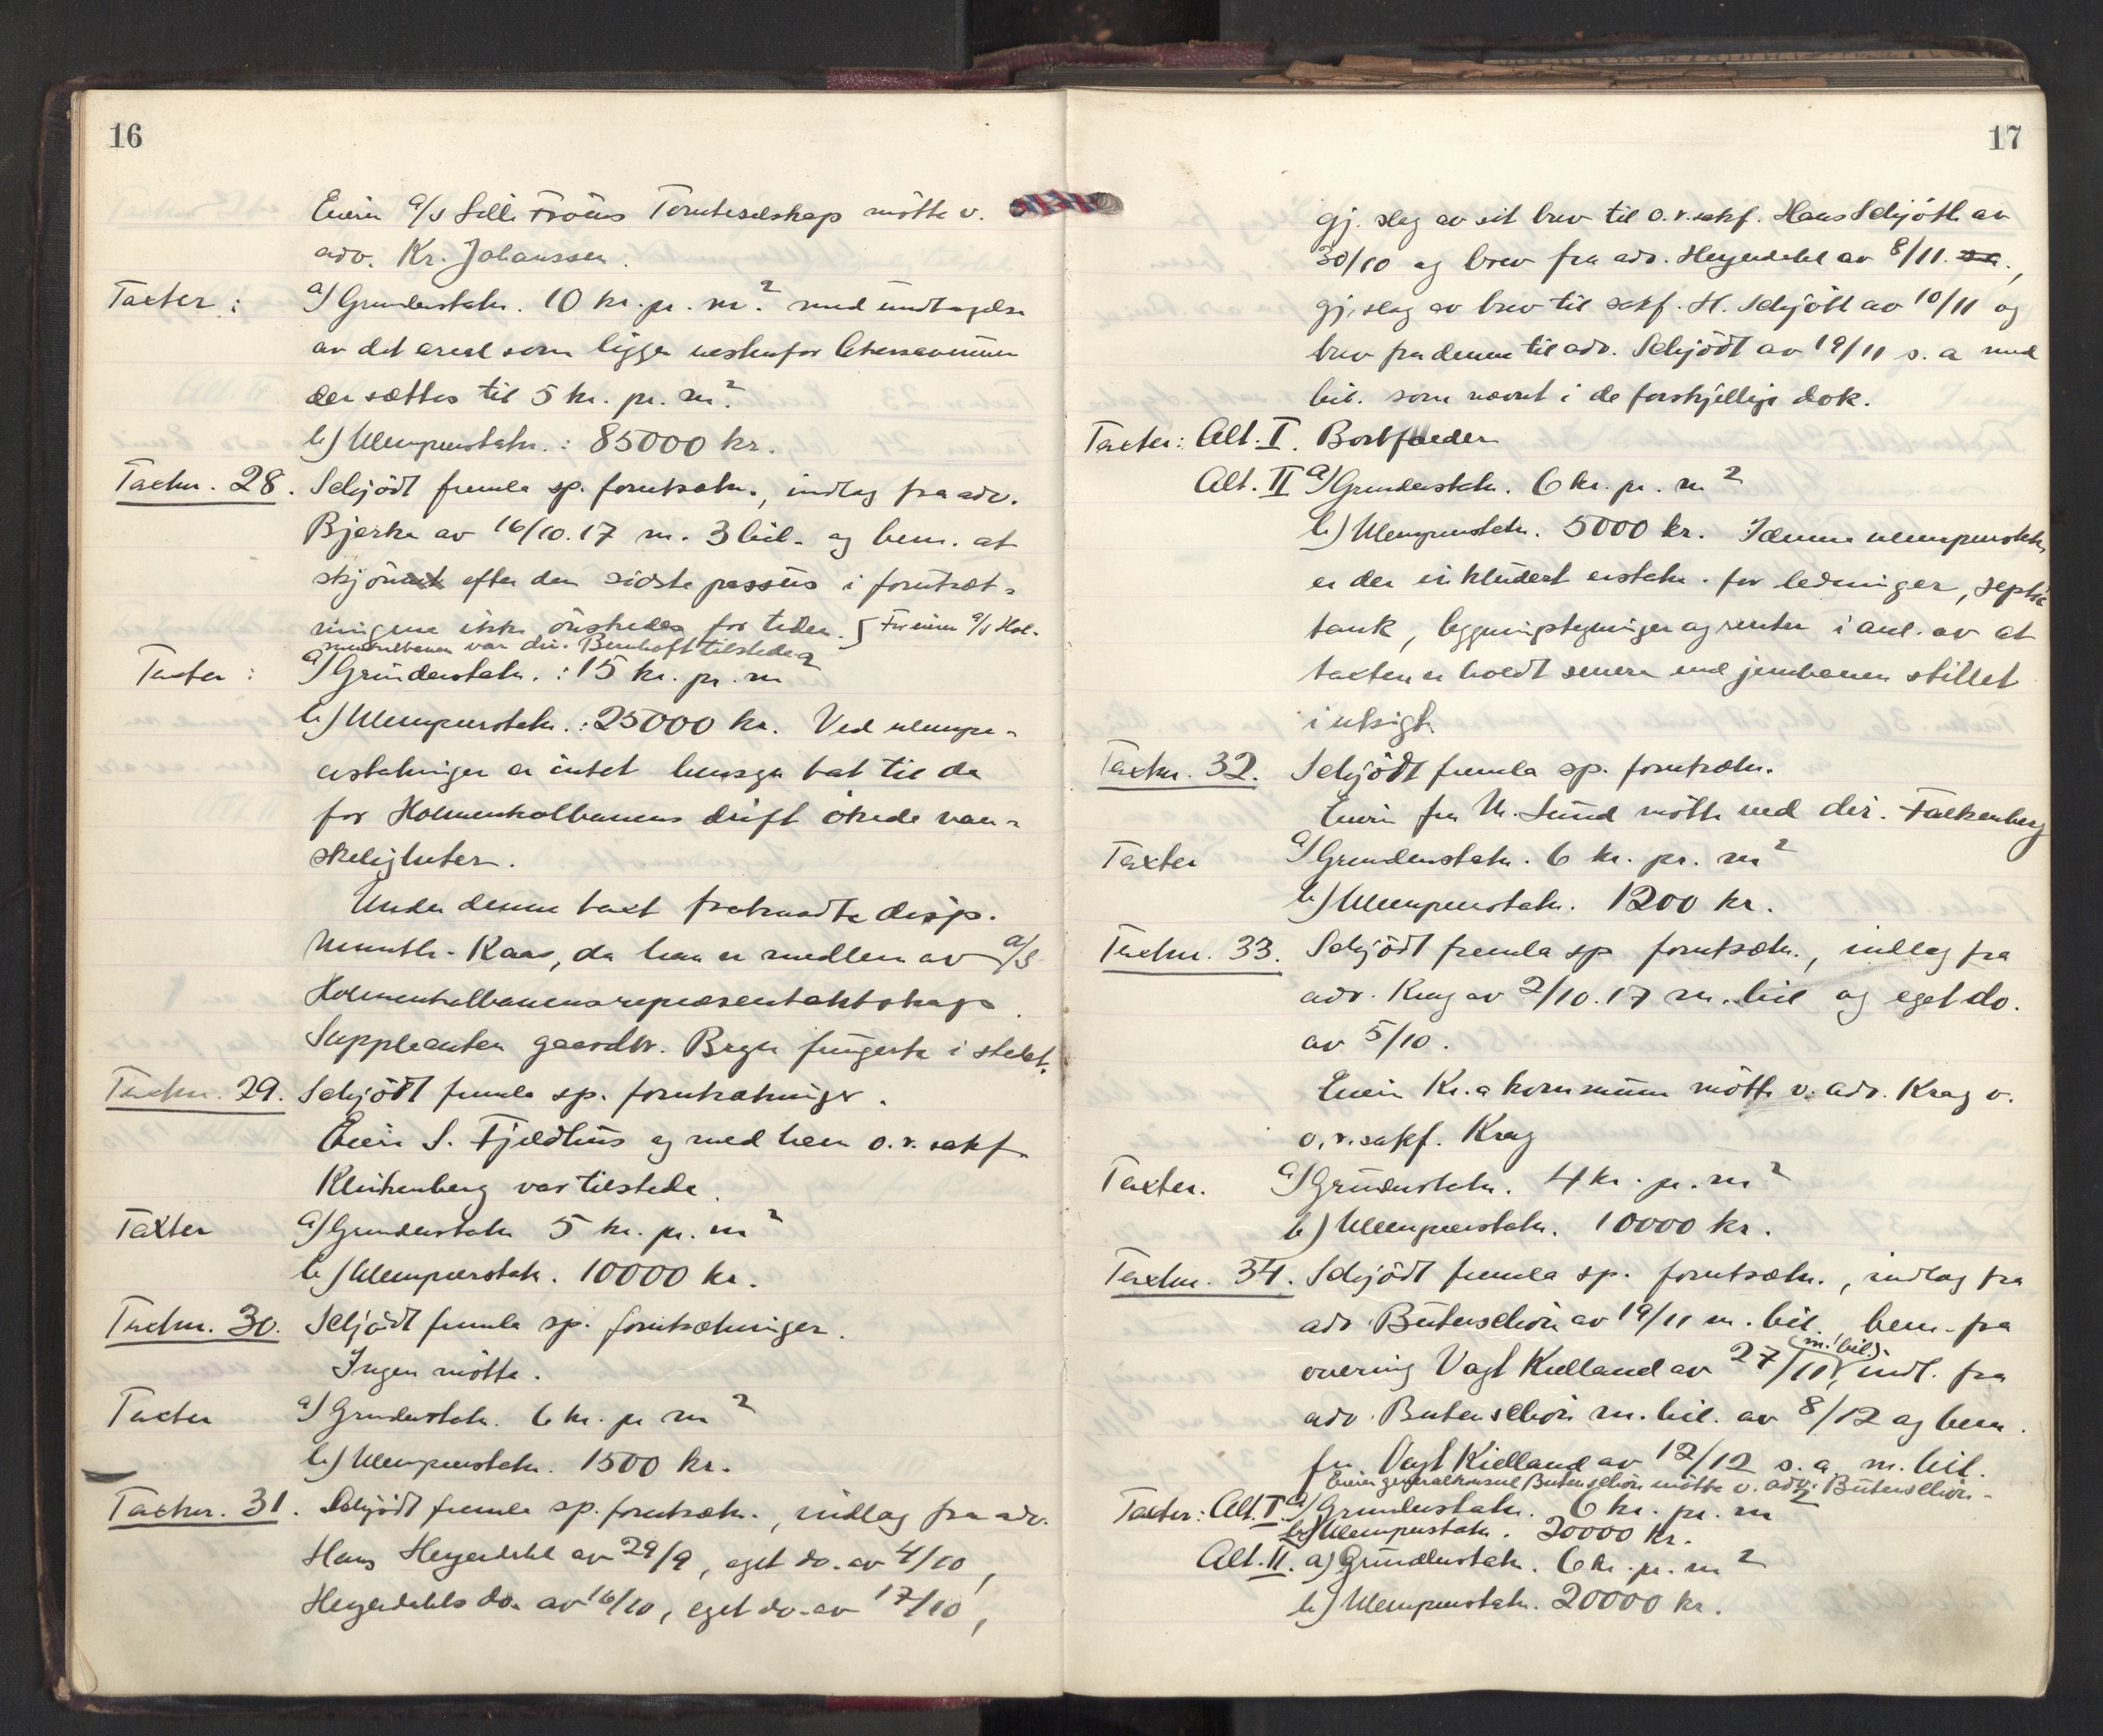 16
Eieren a/s Lille Frøens Tomteselskap mötte v.
adv. Kr. Johanssen.
Taxter: a) Grunderstatn. 10 kr. pr. m². med undtagelse
av det areal som ligger vestenfor
der sættes til 5 kr. pr. m².
b) Ulempeerstatn.: 85000 kr.
Taxtnr. 28. Schjödt fremla sp. forutsætn., indlæg fra adv.
Bjerke av 16/10.17 m. 3 bil. og bem. at
skjönnet efter den sidste passus i forutsæt-
ningene ikke önskedes for tiden. } For eieren a/s Hol-
menkolbanen var dir. Bernhoft tilstede
Taxter: a) Grunderstatn.: 15 kr. pr. m²
b) Ulempeerstatn.: 25000 kr. Ved ulempe-
erstatninger er intet hensyn tat til de
for Holmenkolbanens drift ökede van-
skeligheter.
Under denne taxt fratraadte disp.
Munthe-Kaas, da han er medlem av a/s
Holmenkolbanens repræsentantskap.
Suppleanten gaardbr. Bryn fungerte i stedet.
Taxtnr. 29. Schjödt fremla sp. forutsætninger.
Eieren S. Fjeldhus og med ham o.r.sakf.
Klinkenberg var tilstede.
Taxter a) Grunderstatn 5 kr. pr. m²
b) Ulempeerstatn. 10000 kr.
Taxtnr. 30. Schjödt fremla sp. forutsætninger.
Ingen mötte.
Taxter a) Grunderstatn. 6 kr. pr m²
b) Ulempeerstatn. 1500 kr.
Taxtnr. 31. Schjödt fremla sp. forutsætn., indlæg fra adv.
Hans Heyerdahl av 29/9, eget do. av 4/10,
Heyerdahls do. av 16/10, eget do. av 17/10,
17
gj.slag av sit brev til o.r.sakf. Hans Schjöth av
30/10 og brev fra adv. Heyerdahl av 8/11 s.a.,
gj.slag av brev til sakf. H. Schjöth av 10/11 og
brev fra denne til adv. Schjödt av 19/11 s. a med
bil. som nævnt i de forskjellige dok.
Taxter: Alt. I. Bortfalder
Alt. II a) Grunderstatn. 6 kr. pr. m²
b) Ulempeerstatn. 5000 kr. I denne ulempeerstatn.
er der inkludert erstatn. for ledninger, septik
tank, bygningstegninger og renter i anl. av at
taxten er holdt senere end jernbanen stillet
i utsigt
Taxtnr. 32. Schjödt fremla sp. forutsætn.
Eieren fru M. Lund mötte ved dir. Falkenberg
Taxter a) Grunderstatn. 6 kr. pr. m²
b) Ulempeerstatn. 1200 kr.
Taxtnr. 33. Schjödt fremla sp forutsætn., indlæg fra
adv. Krag av 2/10.17 m. bil og eget do.
av 5/10.
Eieren Kr.a kommune mötte v. adv. Krag v.
o.r.sakf. Krag
Taxter. a) Grunderstatn. 4 kr. pr. m²
b) Ulempeerstatn. 10000 kr.
Taxtnr. 34. Schjödt fremla sp. forutsætn., indlæg fra
adv. Butenschön av 19/11 m. bil. bem. fra
overing Vogt Kielland av 27/11 (m. bil.), indl. fra
adv. Butenschön m. bil. av 8/12 og bem.
fra Vogt Kielland av 12/12 s. a. m. bil.
Eieren generalkonsul Butenschön mötte v. adv. Butenschön.
Taxter: Alt. I. a) Grunderstatn. 6 kr. pr. m²
b) Ulempeerstatn. 20000 kr.
Alt. II. a) Grunderstatn. 6 kr. pr. m²
b) Ulempeerstatn. 20000 kr.